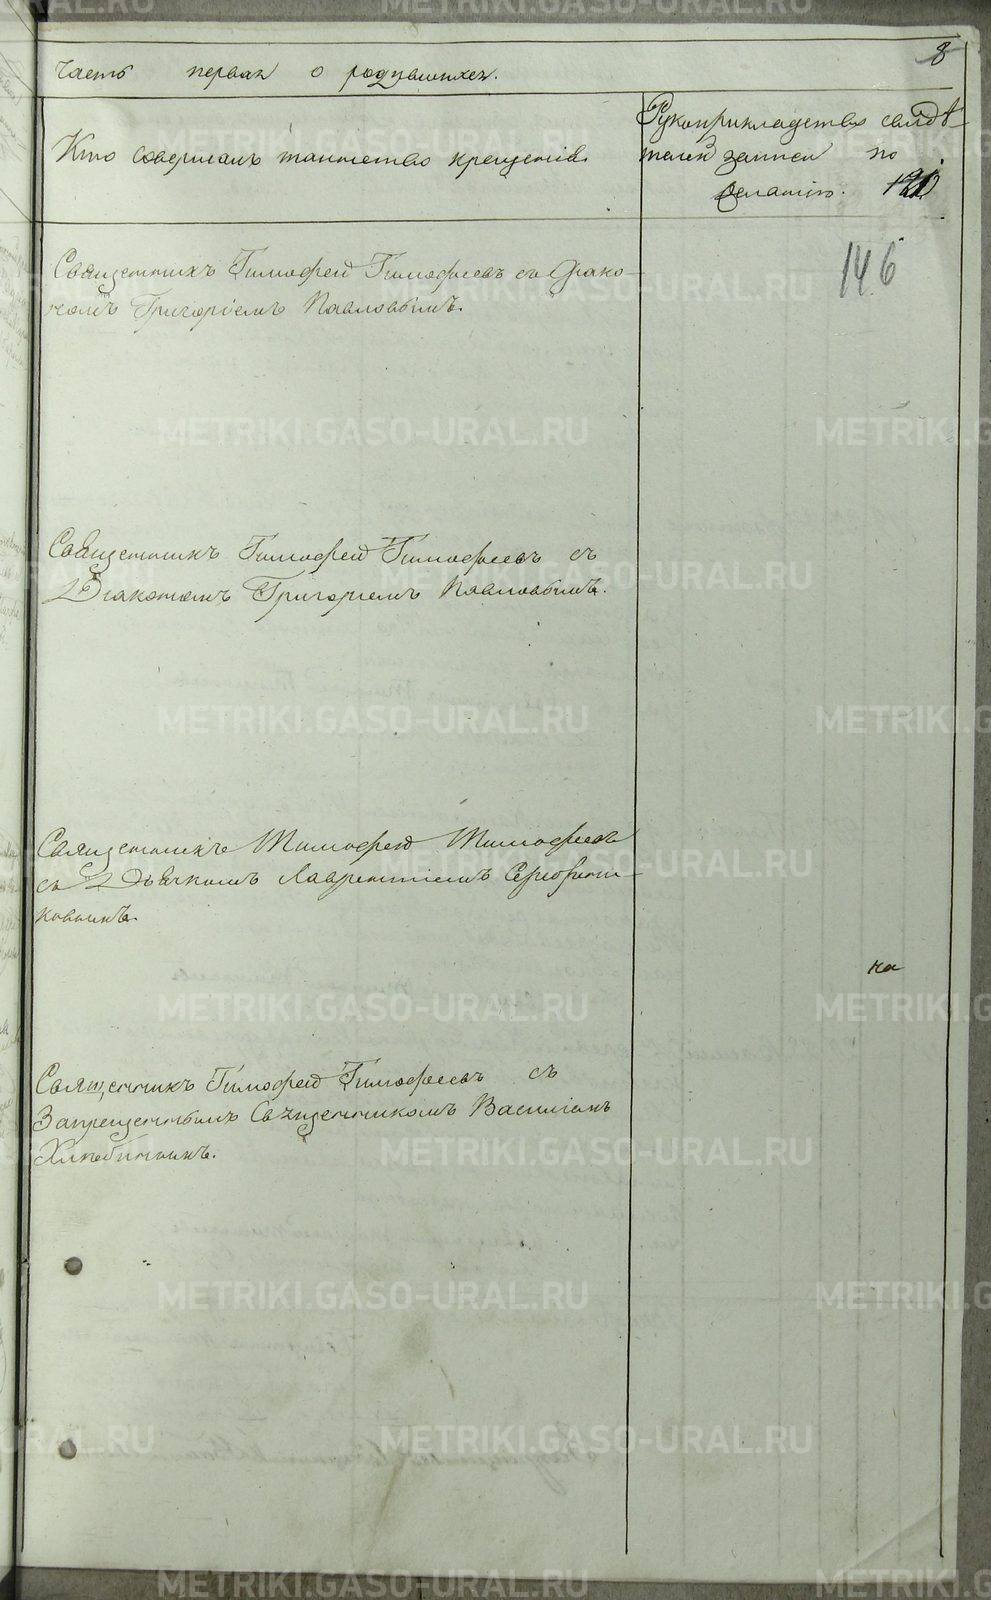 8
Часть первая о родившихся.
Кто совершалъ таинство крещенія.
Рукоприкладство свидѣ-
телей записи по
желанію.
146
Священникъ Тимофей Тимофеевъ съ Діако-
номъ Григоріемъ Павловымъ.
Священникъ Тимофей Тимофеевъ съ
Діакономъ Григоріемъ Павловымъ.
Священникъ Тимофей Тимофеевъ
съ Дьячкомъ Лаврентіемъ
на
Священникъ Тимофей Тимофеевъ съ
Запрещеннымъ Священникомъ Василіемъ
Хлебинымъ.
METRIKI.GASO-URAL.RU